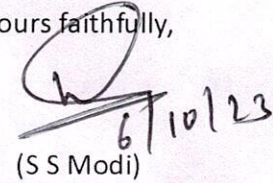 ours faithfully,
6/10/23
(S S Modi)